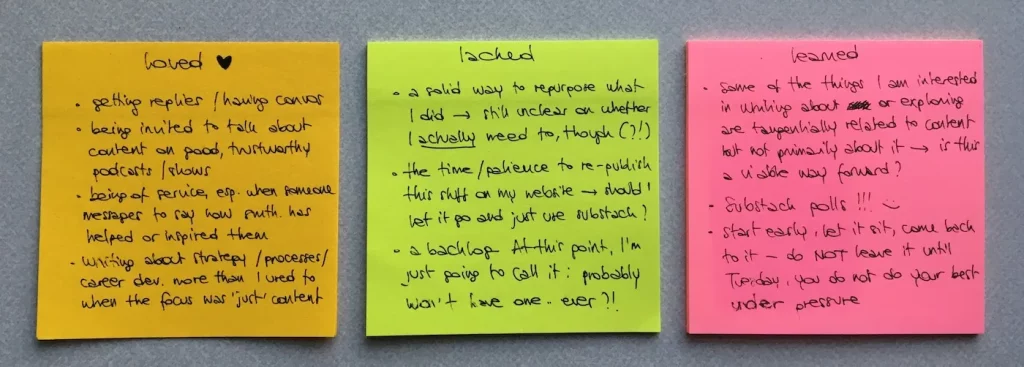 loved ♥
• getting replies / having convos
• being invited to talk about
content on good, trustworthy
podcasts / shows
• being of service, esp. when someone
messages to say how smth. has
helped or inspired them
• writing about strategy / processes /
career dev. more than I used to
when the focus was 'just' content
lacked
• a solid way to repurpose what
I did → still unclear on whether
I actually need to, though (?!)
• the time / patience to re-publish
this stuff on my website → should I
let it go and just use substack?
• a backlog. At this point, I'm
just going to call it: probably
won't have one.. ever?!
learned
• some of the things I am interested
in writing about or exploring
are tangentially related to content
but not primarily about it → is this
a viable way forward?
• Substack polls!!! :)
• start early, let it sit, come back
to it – do NOT leave it until
Tuesday, you do not do your best
under pressure